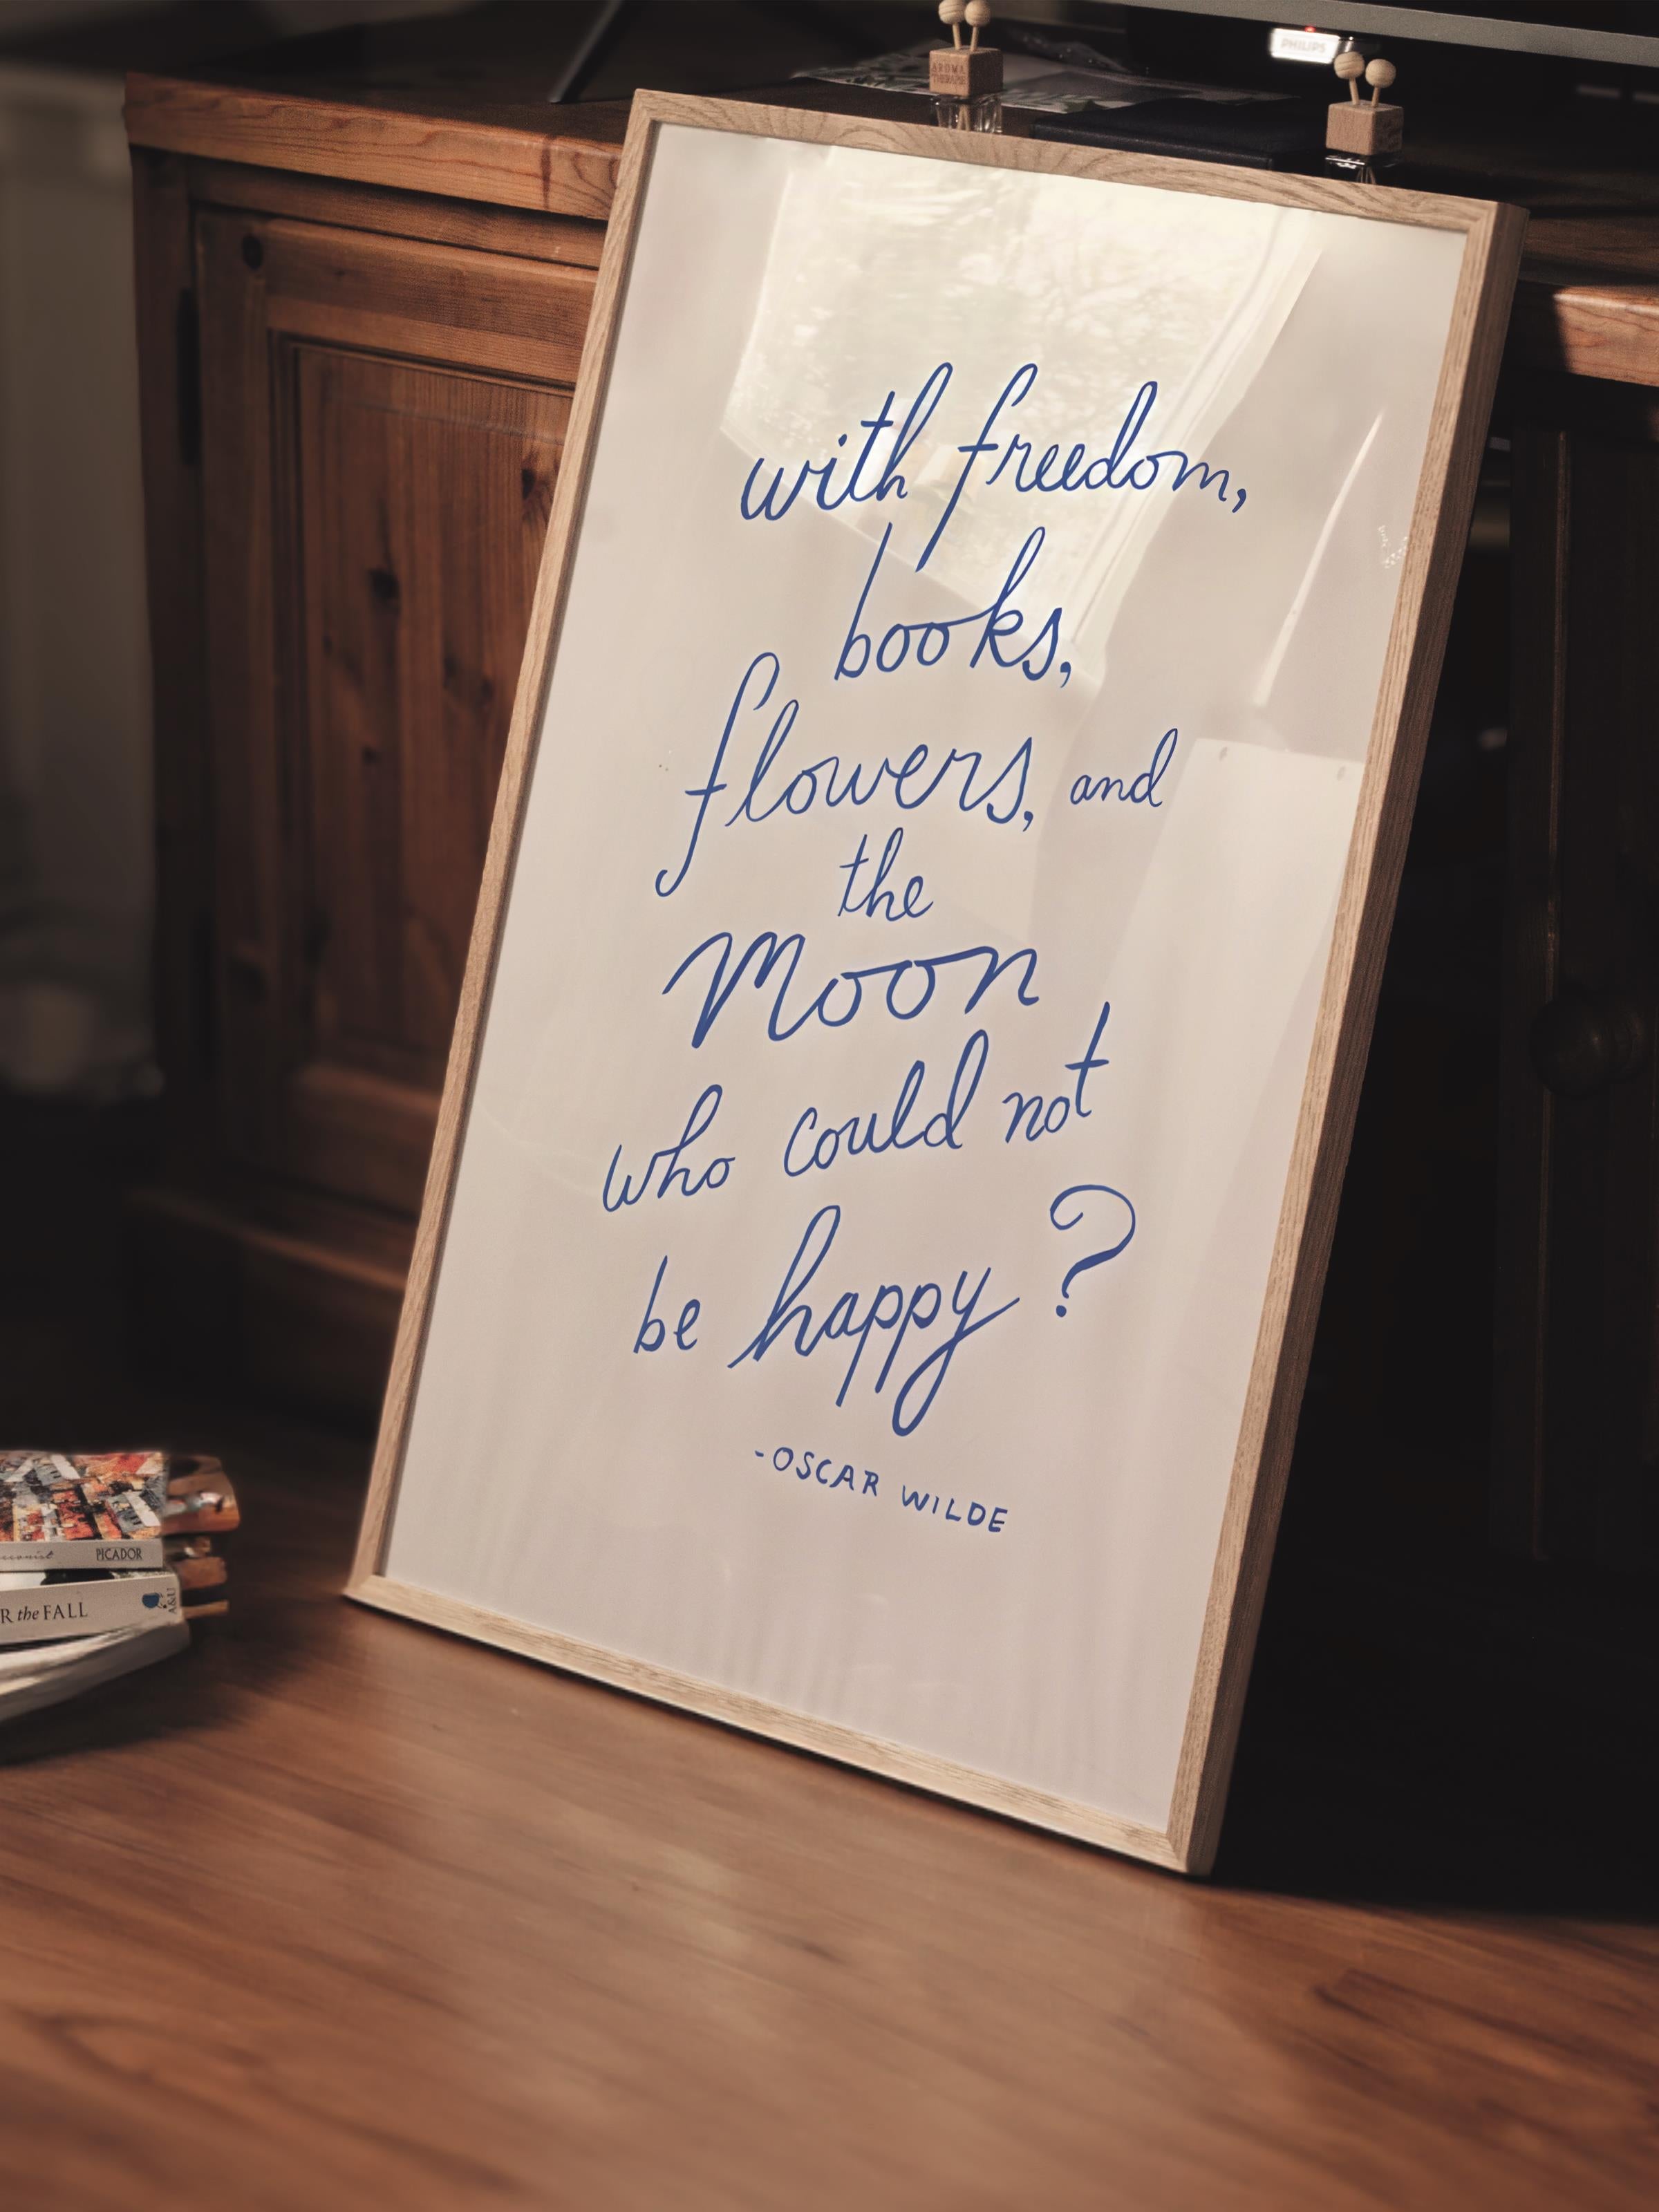 PHILIPS
AROMA
THERAPIE
with freedom,
books,
flowers, and
the
Moon
who could not
be happy?
-OSCAR WILDE
PICADOR
R the FALL
A&U